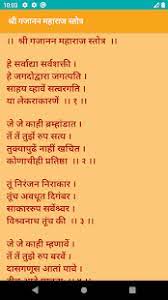 10:03
श्री गजानन महाराज स्तोत्र
।। श्री गजानन महाराज स्तोत्र ।।
हे सर्वाद्या सर्वशक्ती ।
हे जगदोद्वारा जगत्पति ।
साहय व्हावे सत्वरगति
या लेकराकारणें ।। १ ।।
जे जे काही ब्रम्हांडात ।
तें तें तुझें रुप सत्य ।
तुक्यापुढें नाहीं खचित ।
कोणाचीही प्रतिष्ठा ।। २ ।।
तूं निरंजन निराकार ।
तूंच अवधूत दिगंबर ।
साकाररुप सर्वेश्वर ।
विश्वनाथ तूंच की ।। ३ ।।
जे जे काही म्हणावें ।
तें तें तुझें रुप बरवें ।
दासगणूस आतां पावे ।